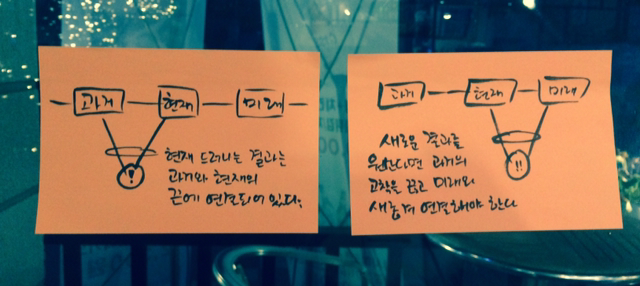 과거 현재 미래
!
현재 드러나는 결과는
과거와 현재의
끈에 연결되어 있다.
과거 현재 미래
!!
새로운 결과를
원한다면 과거의
고착을 끊고 미래와
새롭게 연결해야 한다